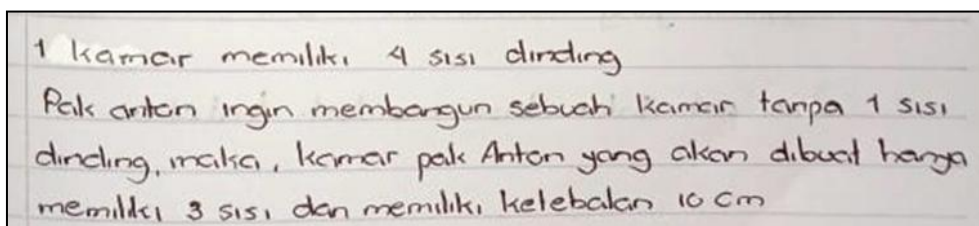 1 kamar memiliki 4 sisi dinding
Pak anton ingin membangun sebuah kamar tanpa 1 sisi
dinding, maka, kamar pak Anton yang akan dibuat hanya
memiliki 3 sisi dan memiliki kelebalan 10 cm